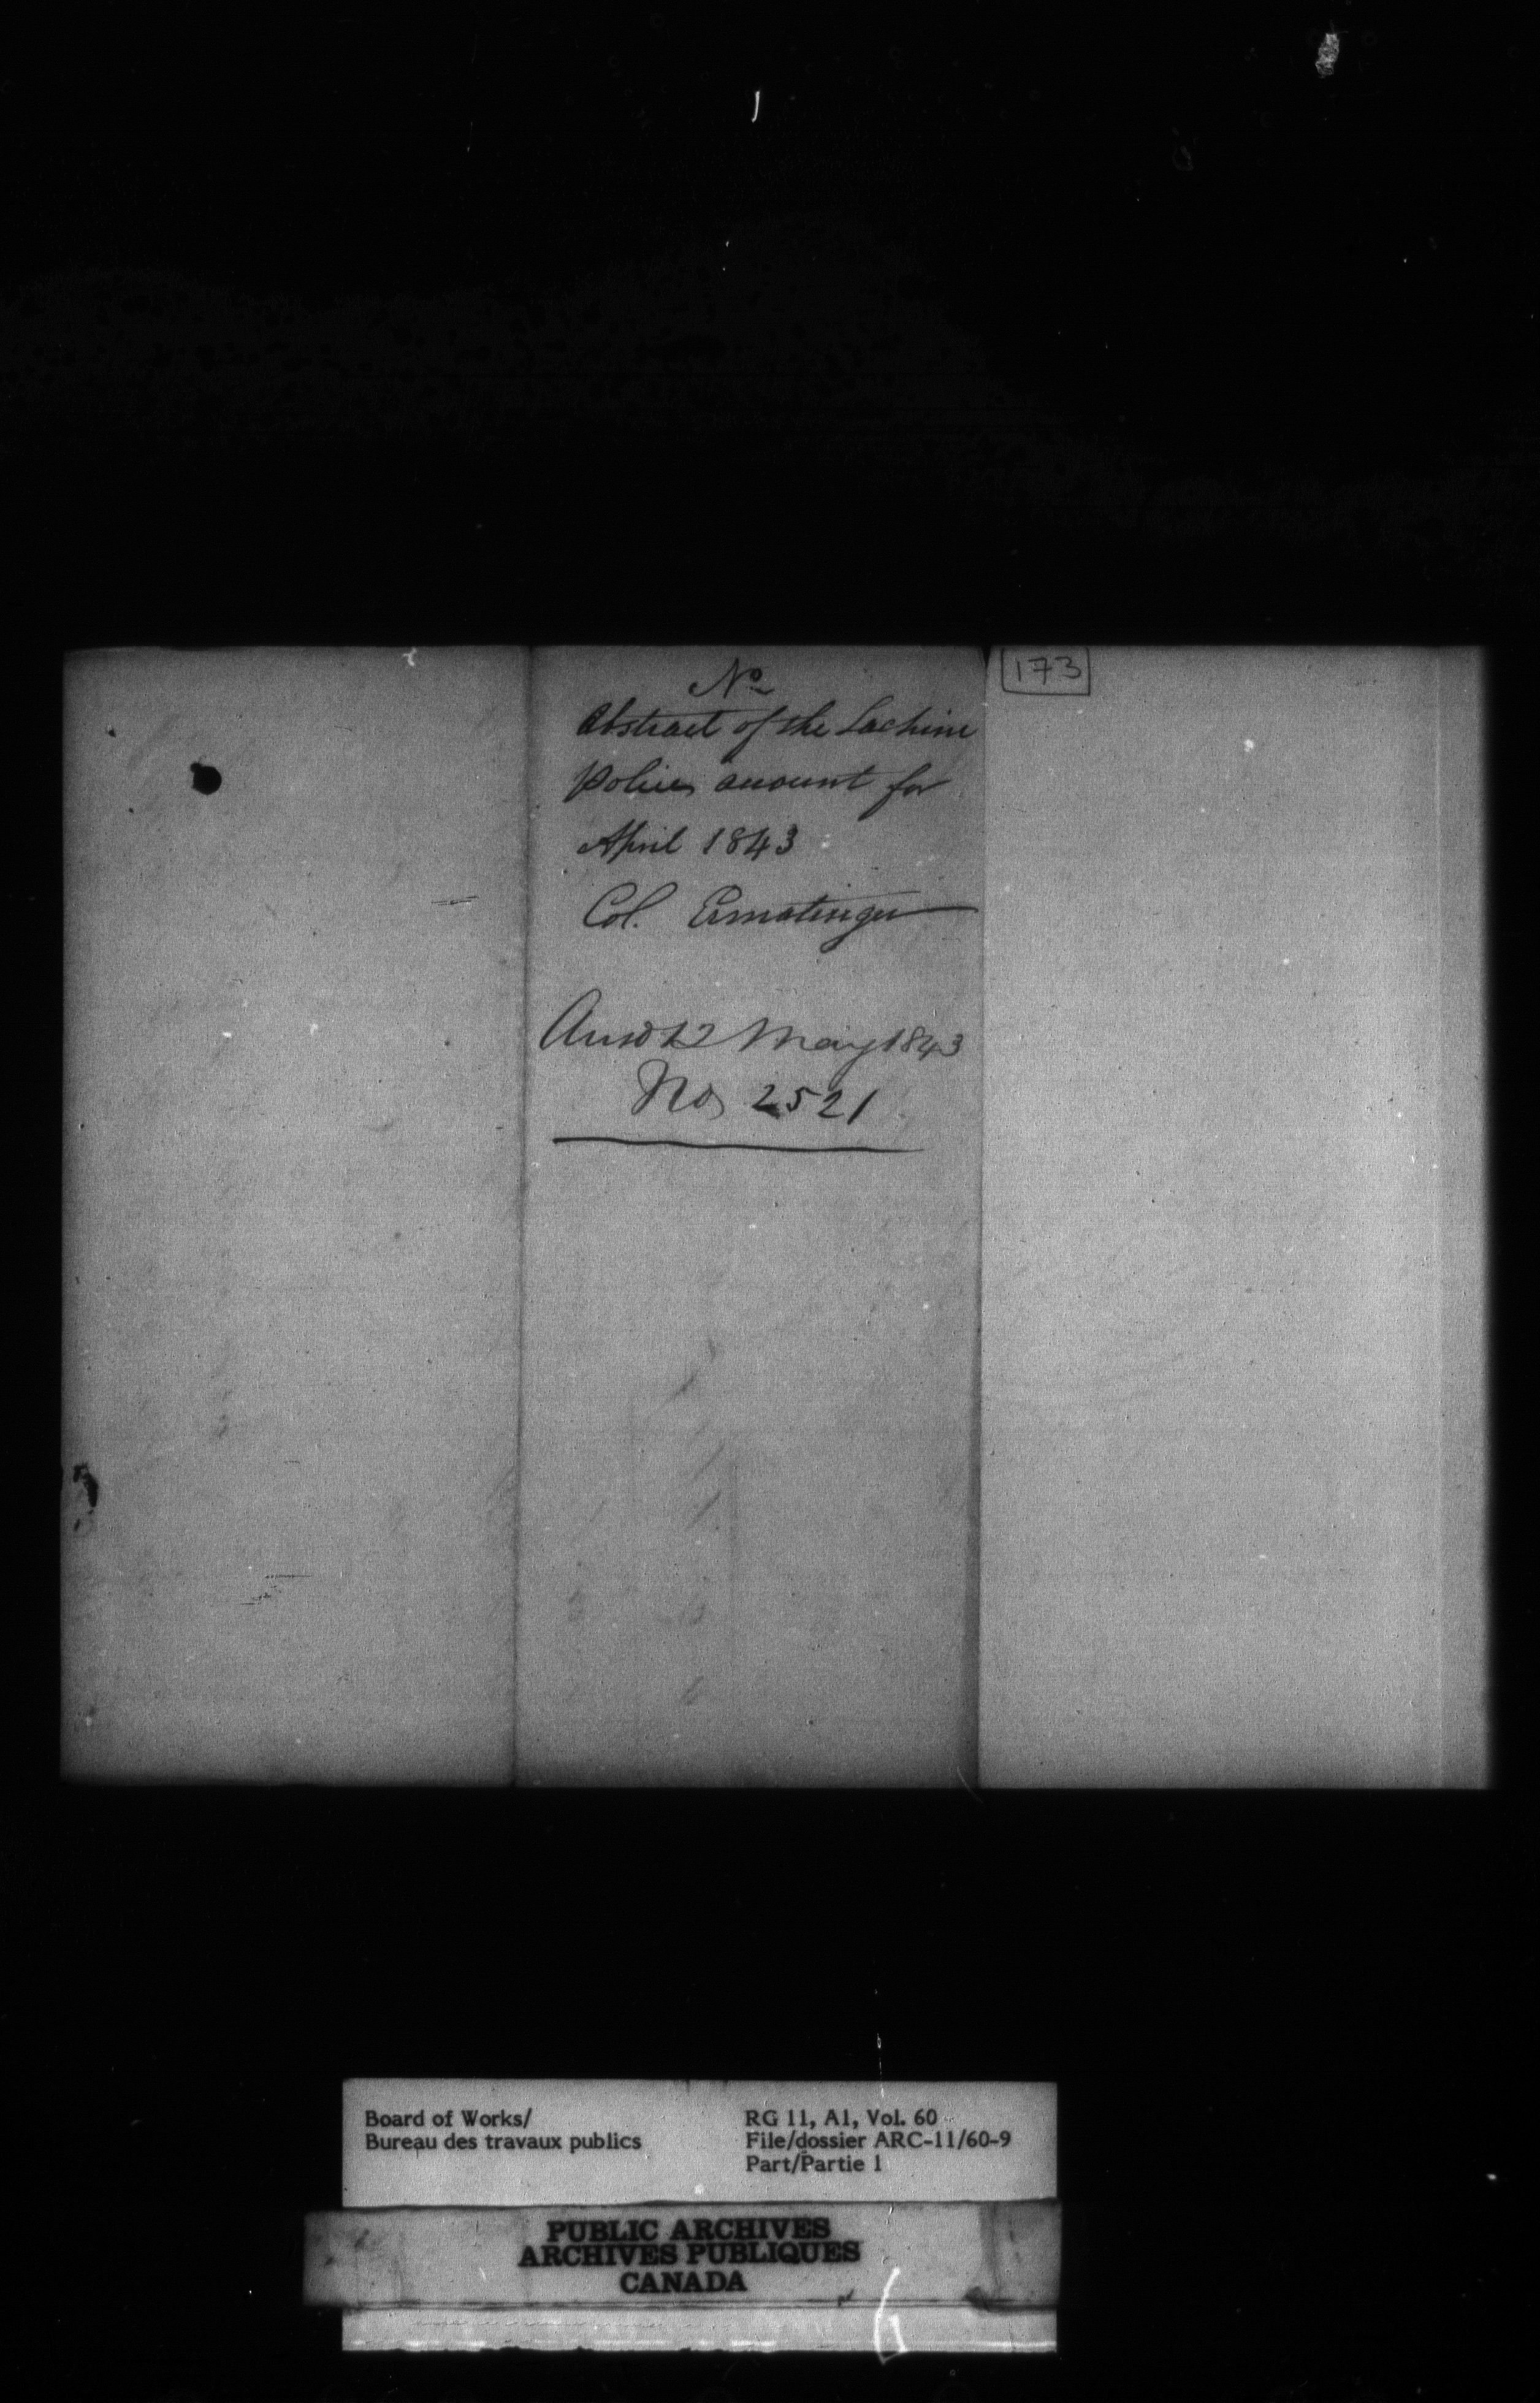 173
No
Abstract of the Lachine
Police account for
April 1843
Col. Ermatinger
Answd 12 May 1843
No 2521
Board of Works/
Bureau des travaux publics
RG 11, A1, Vol. 60
File/dossier ARC-11/60-9
Part/Partie 1
PUBLIC ARCHIVES
ARCHIVES PUBLIQUES
CANADA